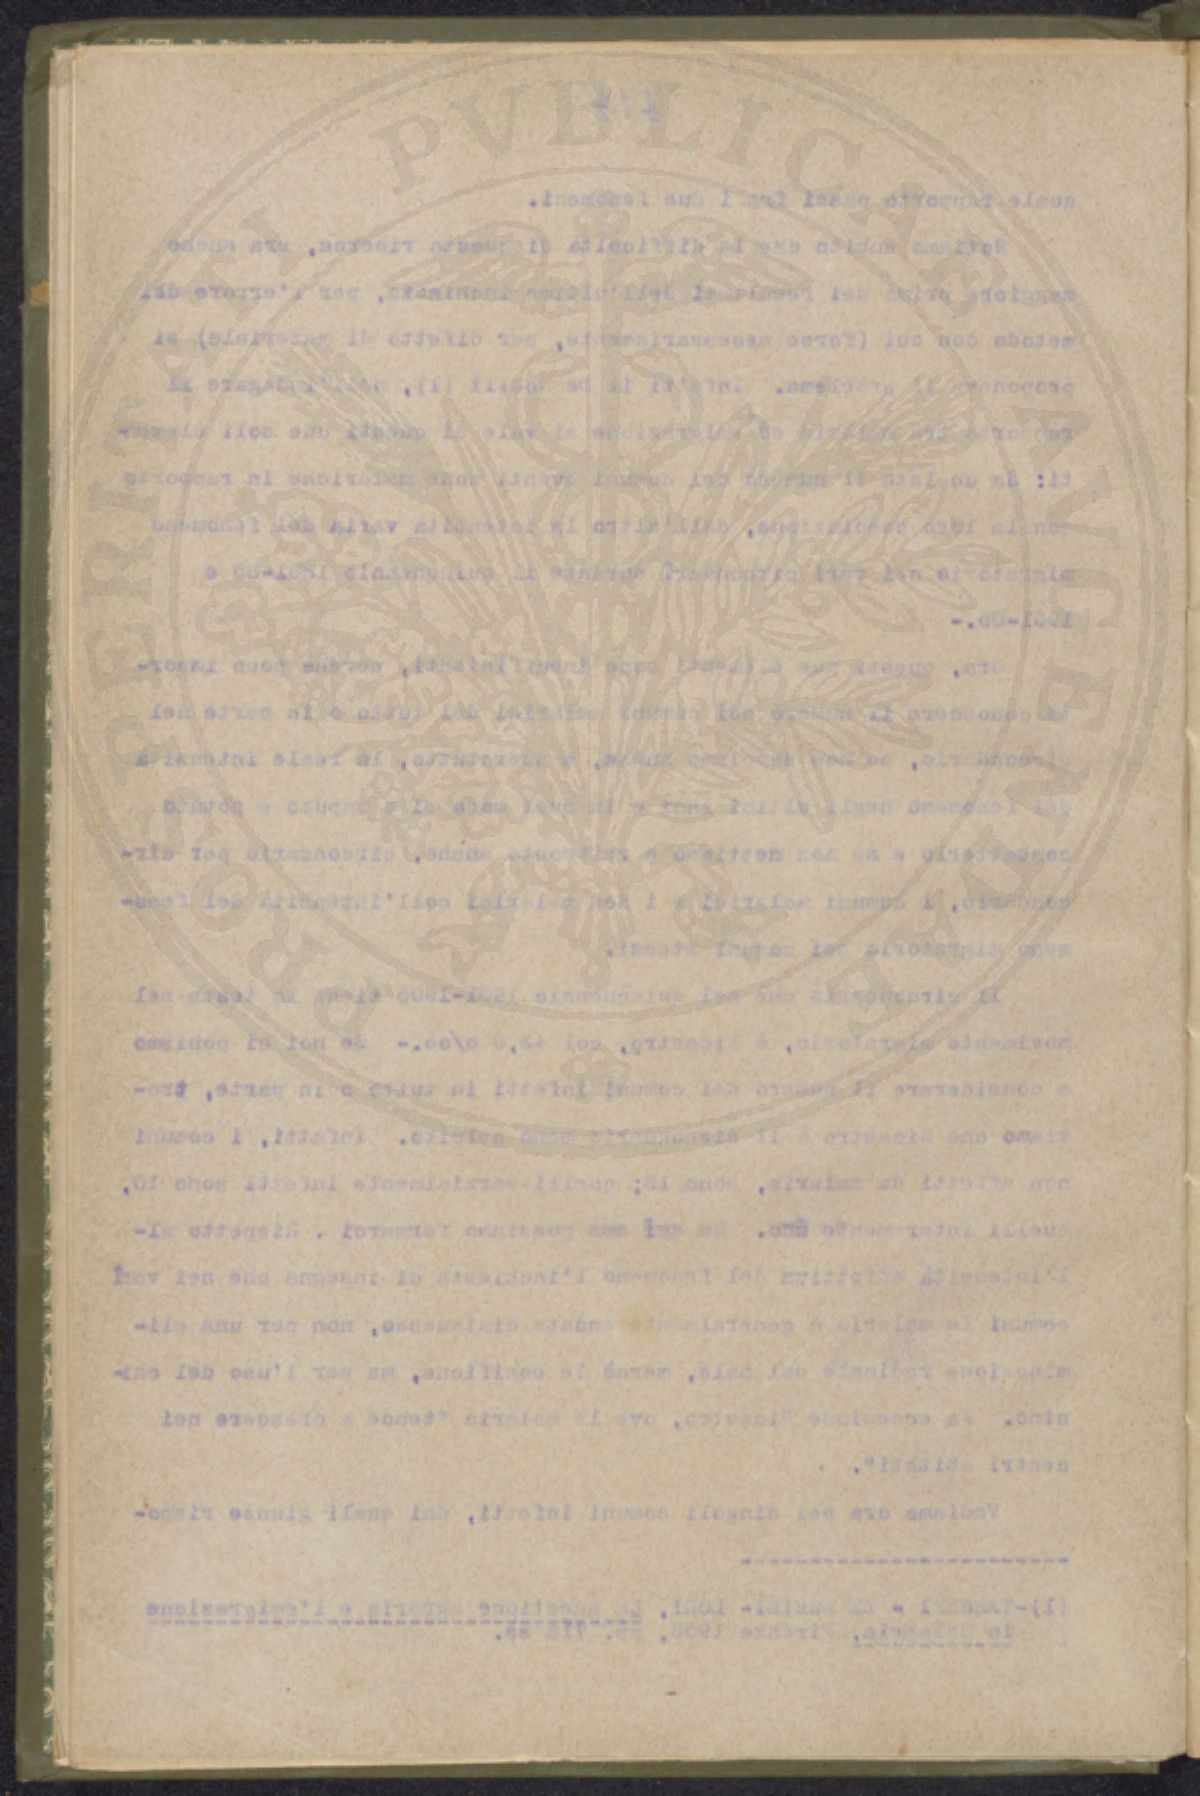 quale rapporto passi fra i due fenomeni.
Notiamo subito che la difficoltà di questa ricerca, era anche
maggiore prima dei resultati dell'ultima inchiesta, per l'errore del
metodo con cui (forse necessariamente, per difetto di materiale) si
proponeva il problema. Infatti il De Nobili (1), nell'indagare il
rapporto fra malaria ed emigrazione si vale di questi due soli elemen-
ti: da un lato il numero dei comuni aventi zone malariche in rapporto
con la loro popolazione, dall'altro la intensità varia del fenomeno
migratorio nei vari circondari durante il quinquennio
1901-05.-
Ora, questi due elementi sono insufficienti, perchè poco impor-
ta conoscere il numero dei comuni malarici del tutto o in parte nel
circondario, se non sappiamo anche, e sopratutto, la reale intensità
del fenomeno negli ultimi anni e in qual modo si è saputo e potuto
combatterlo e se non mettiamo a raffronto anche, circondario per cir-
condario, i comuni malarici e i non malarici coll'intensità del feno-
meno migratorio dei comuni stessi.
Il circondario che nel quinquennio 1901-1905 tiene la testa nel
movimento migratorio, è Nicastro, col o/oo.- Se noi ci poniamo
a considerare il numero dei comuni infetti in tutto o in parte, tro-
viamo che Nicastro è il circondario meno colpito. Infatti, i comuni
non affetti da malaria, sono 15; quelli parzialmente infetti sono 10,
quelli interamente uno. Ma qui non possiamo fermarci. Rispetto al-
l'intensità effettiva del fenomeno l'inchiesta ci insegna che nei vari
comuni la malaria è generalmente andata diminuendo, non per una eli-
minazione radicale del male, mercè le bonifiche, ma per l'uso del chi-
nino. Fa eccezione Nicastro, ove la malaria "tende a crescere nei
centri abitati".
Vediamo ora nei singoli comuni infetti, dai quali giunse rispo-
------------------------
(1)-TARUFFI - DE NOBILI- LORI, La questione agraria e l'emigrazione
in Calabria, Firenze 1908, pp. 718 ss.
PROSPERITATI PVBLICAE AVGENDAE